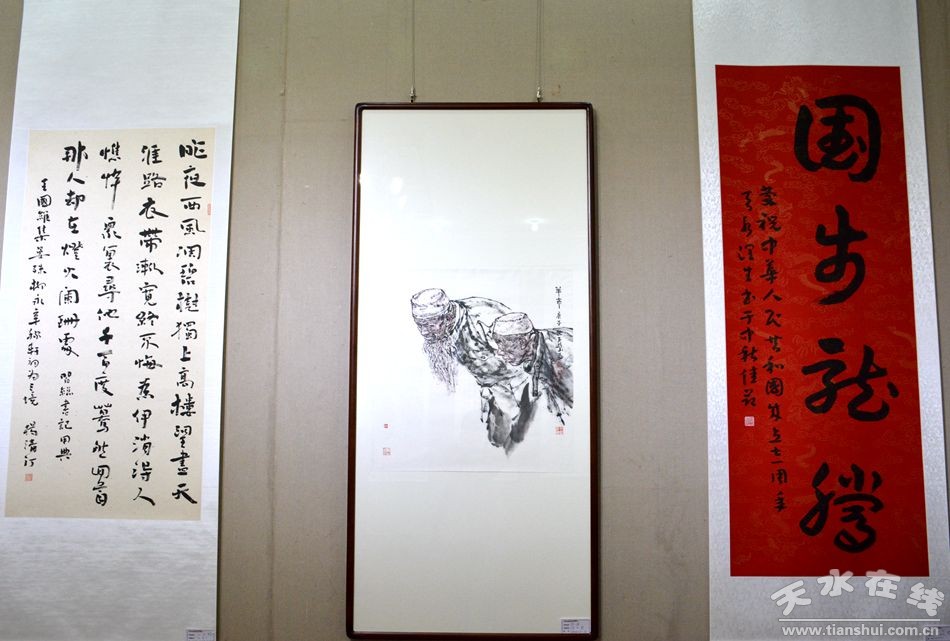 昨夜西風凋碧樹獨上高樓望盡天
涯路衣帶漸寬終不悔為伊消得人
憔悴眾裏尋他千百度驀然回首
那人却在燈火闌珊處 習總書記用典
王國維集晏殊柳永辛稼軒詞為三境 楊清汀
国步龍騰
慶祝中華人民共和國成立七十一周年
生書于中秋佳節
天水在线
www.tianshui.com.cn